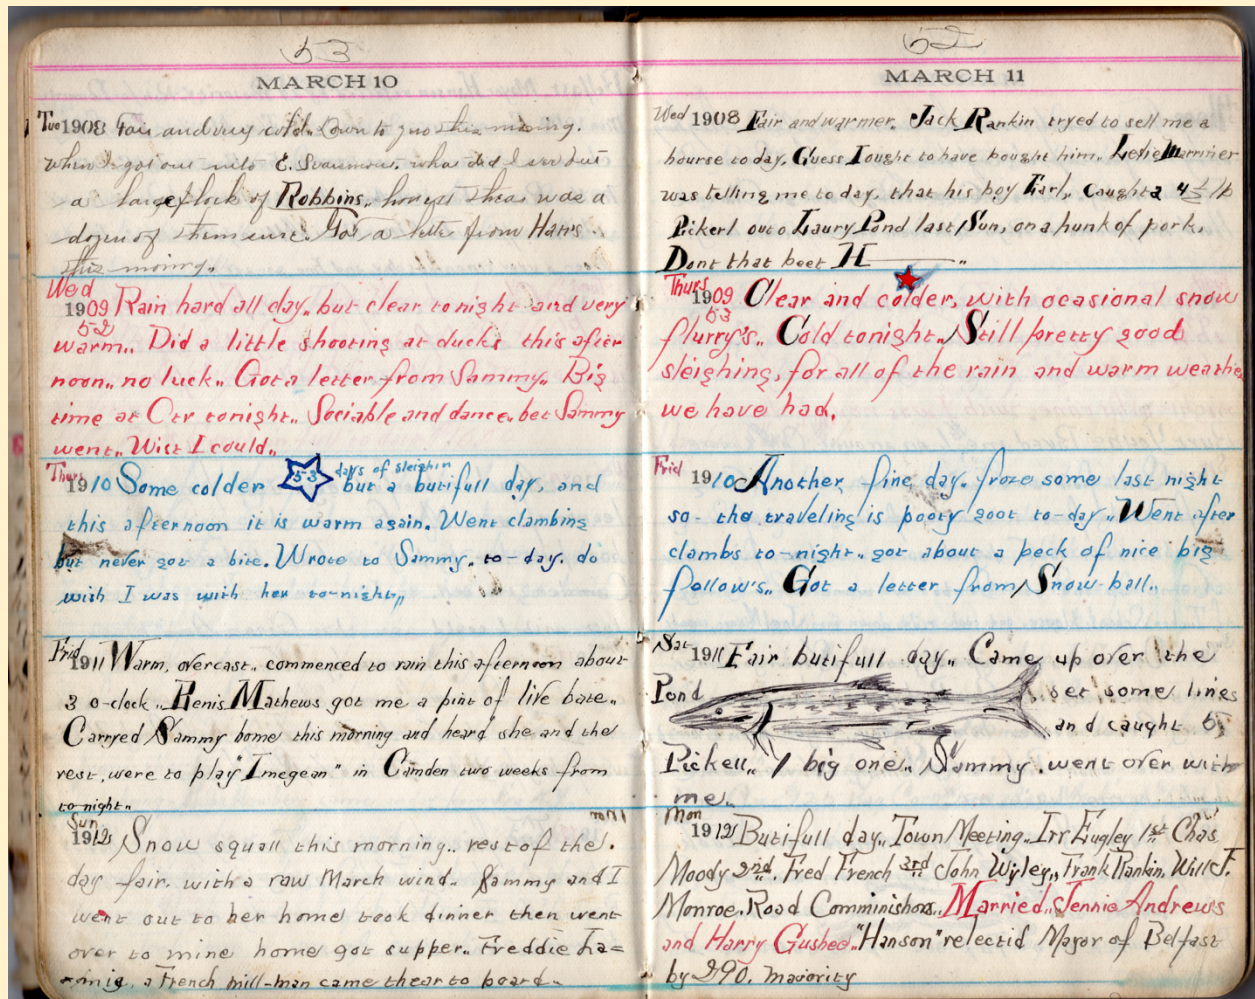 53
MARCH 10
Tue 1908 Fair and very cold. Down to this morning.
when I got out into E. what did I see but
a large flock of Robbins, honest thear was a
dozen of them sure. Got a letter from Hans
this morning.
Wed
1909 Rain hard all day, but clear tonight and very
52
warm.. Did a little shooting at ducks this after
noon.. no luck.. Got a letter from Sammy.. Big
time at Ctr tonight.. Sociable and dance. bet Sammy
went.. Wist I could..
Thurs
1910 Some colder 53 days of sleighin but a butifull day, and
this afternoon it is warm again. Went clambing
but never got a bite. Wrote to Sammy. to-day. do
wish I was with her to-night,,
Frid
1911 Warm, overcast.. commenced to rain this afternoon about
3 o-clock.. Renis Mathews got me a pint of live bate..
Carryed Sammy home this morning and heard she and the
rest, were to play "Imegean" in Camden two weeks from
to night..
Sun
1912 Snow squall this morning.. rest of the.
day fair. with a raw March wind.. Sammy and I
went out to her home took dinner then went
over to mine home got supper.. Freddie La=
a French mill-man came thear to board..
52
MARCH 11
Wed 1908 Fair and warmer. Jack Rankin tryed to sell me a
hourse to day. Guess I ought to have bought him. Leslie Marriner
was telling me to day, that his boy Earl, caught a 4 1/2 lb
Pickerl out o Laury Pond last Sun, on a hunk of pork,
Dont that beet H——"
Thurs
1909 Clear and colder, with ocasional snow
53
flurry's.. Cold tonight.. Still pretty good
sleighing, for all of the rain and warm weather
we have had.
Frid
1910 Another fine day. froze some last night
so- tho traveling is pooty goot to-day.. Went after
clambs to-night.. got about a peck of nice big
fellow's. Got a letter from Snow-ball..
Sat 1911 Fair butifull day.. Came up over the
Pond set some lines
and caught 5
Pickell.. 1 big one.. Sammy. went over with
me..
Mon
1912 Butifull day.. Town Meeting.. Irr Eugley 1st Chas
Moody 2nd. Fred French 3rd John Wyley,, Frank Rankin. Will F.
Monroe. Road Comminishors.. Married.. Jennie Andrews
and Harry Gushee.. "Hanson" relectid Mayor of Belfast
by 290. majority